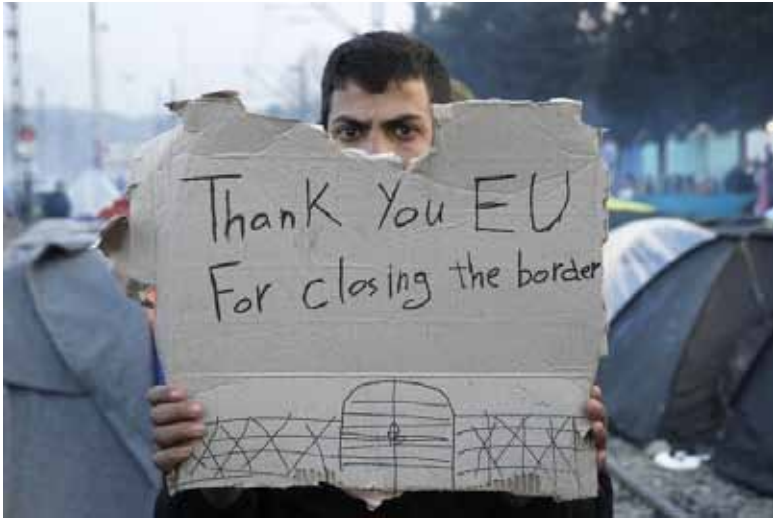 Thank You EU
For closing the border